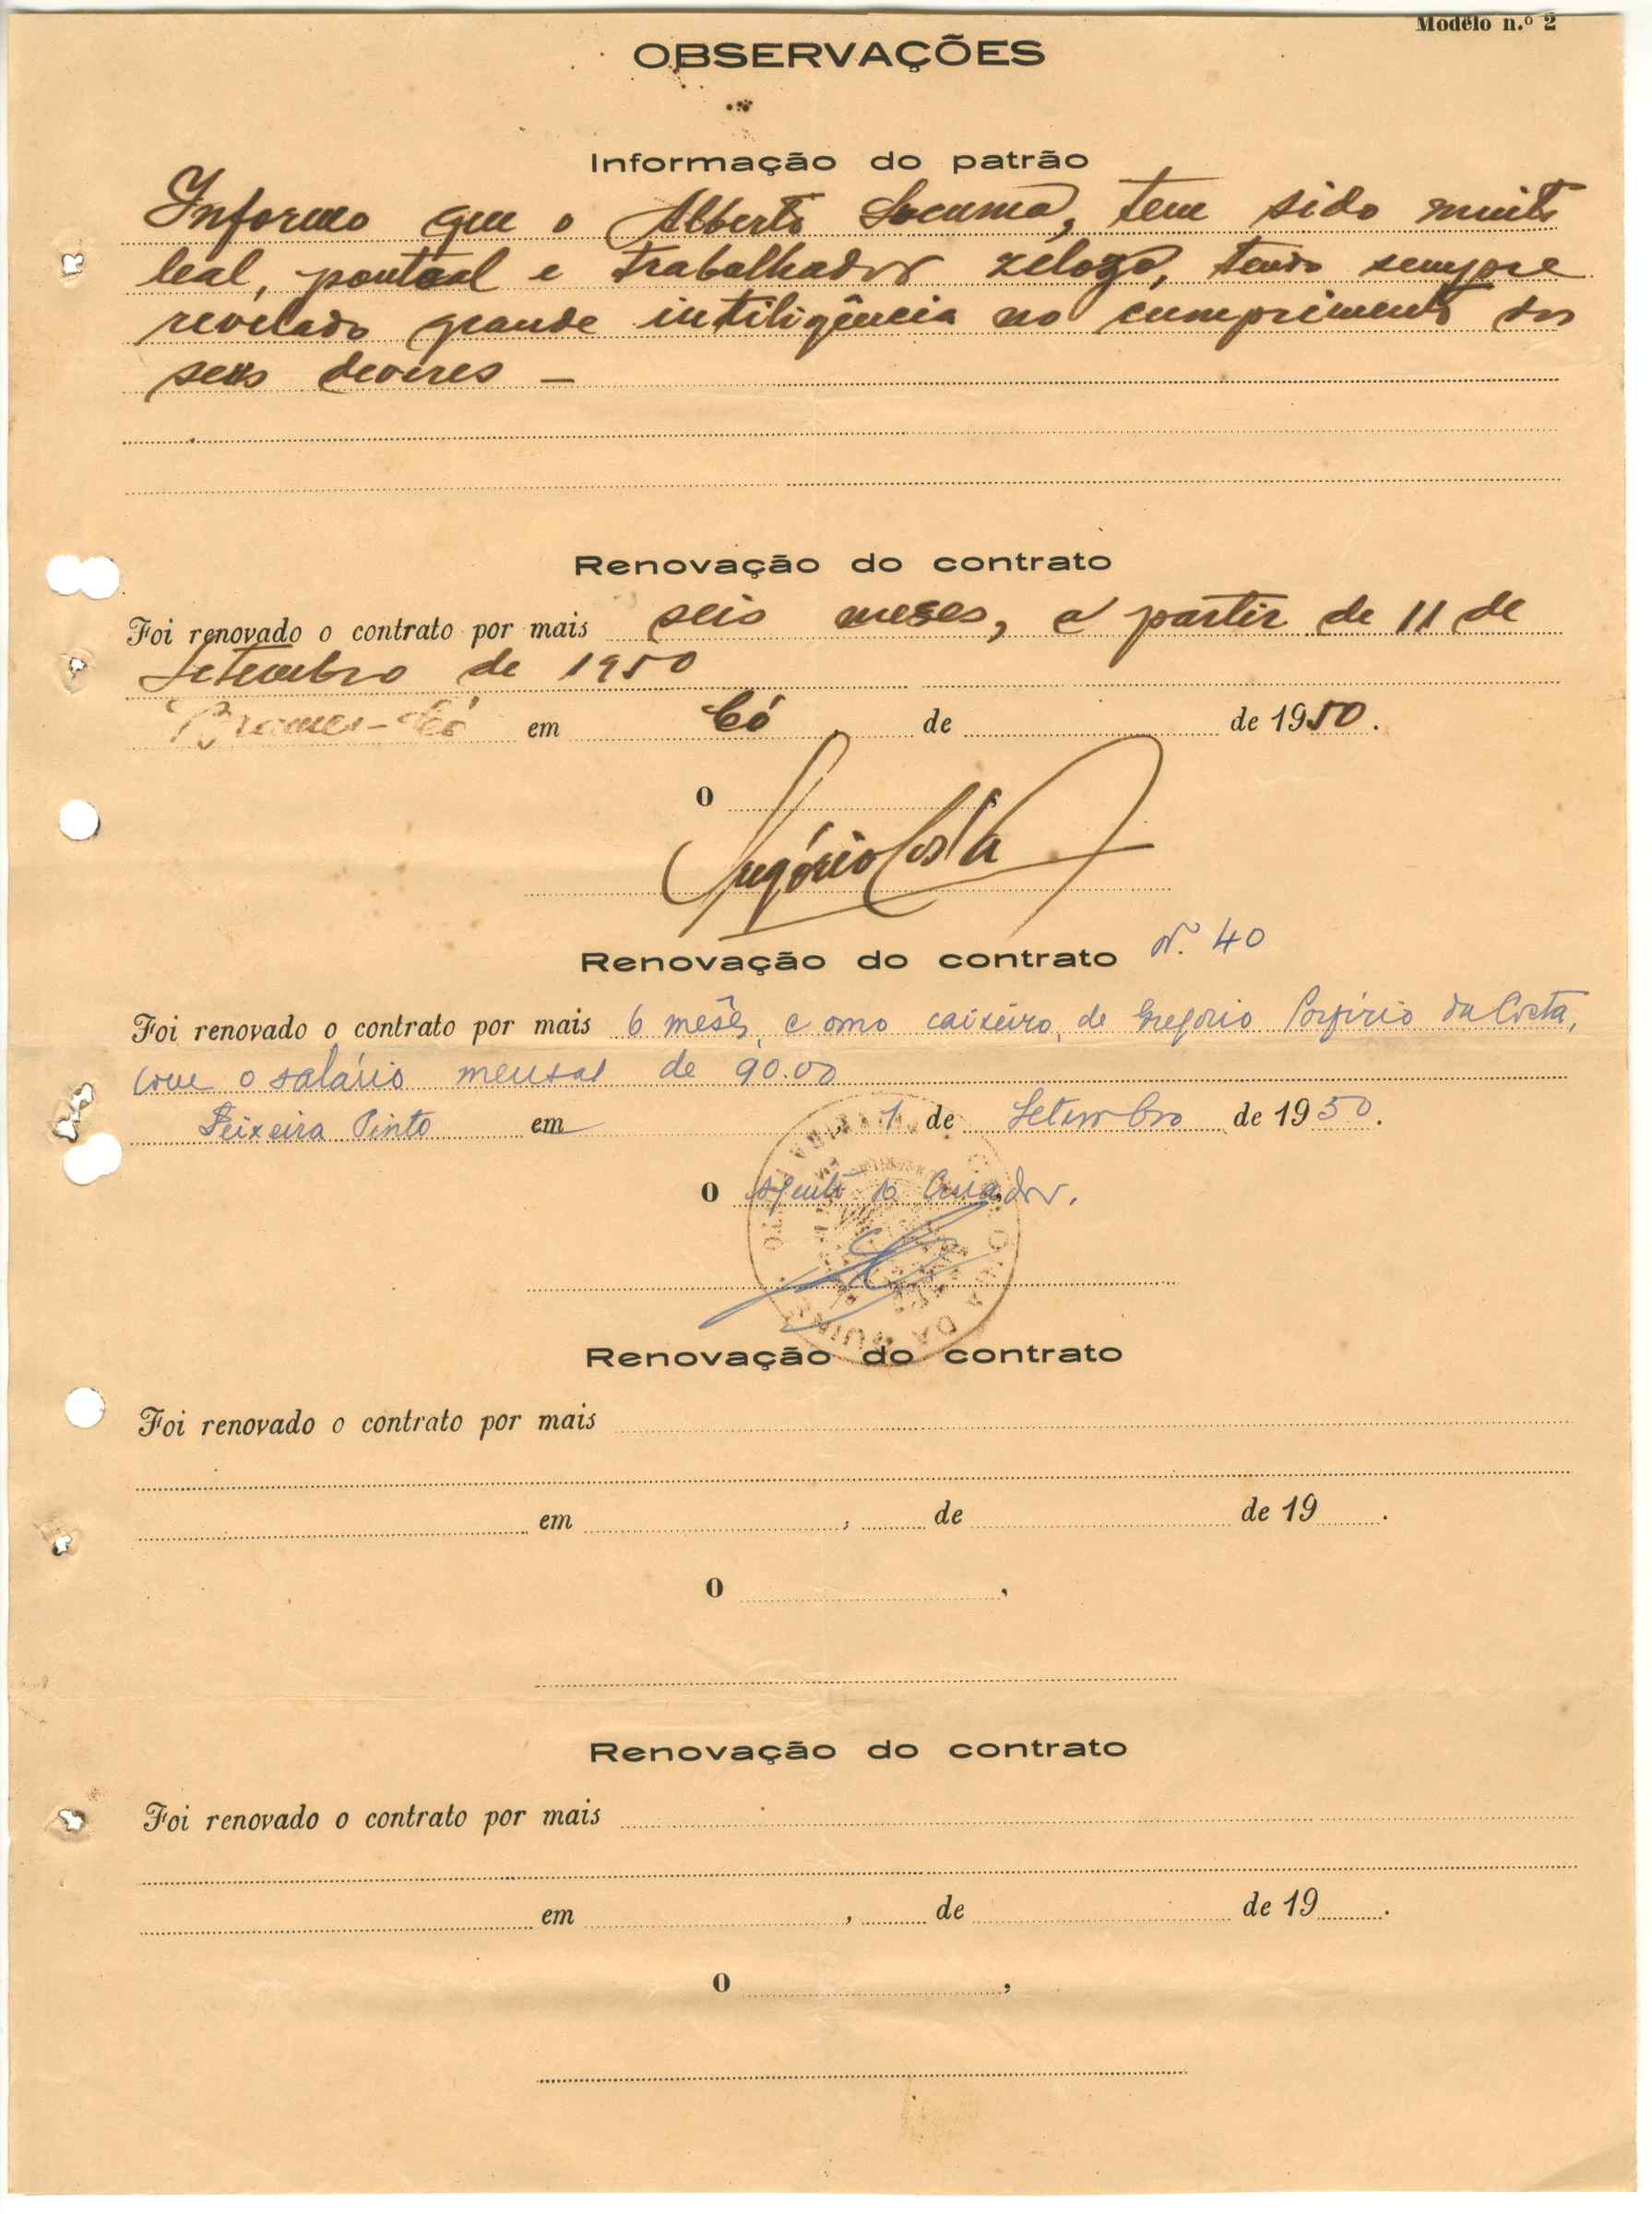 Modêlo n.º 2
OBSERVAÇÕES
Informação do patrão
Informo que o Alberto Locuma, tem sido muito
leal, pontoal e trabalhador zelozo, tendo sempre
revelado grande intiligência no cumprimento dos
seus deveres —
Renovação do contrato
Foi renovado o contrato por mais seis meses, a partir de 11 de
Setembro de 1950
em Có, de de 1950.
O
Renovação do contrato N. 40
Foi renovado o contrato por mais 6 mesês, como caixeiro, de Gregorio Porfirio da Costa,
com o salário mensal de 90.00
Teixeira Pinto em 1 de Setembro de 1950.
O agente do Curador.
Renovação do contrato
Foi renovado o contrato por mais
em , de de 19 .
O ,
Renovação do contrato
Foi renovado o contrato por mais
em , de de 19 .
O ,